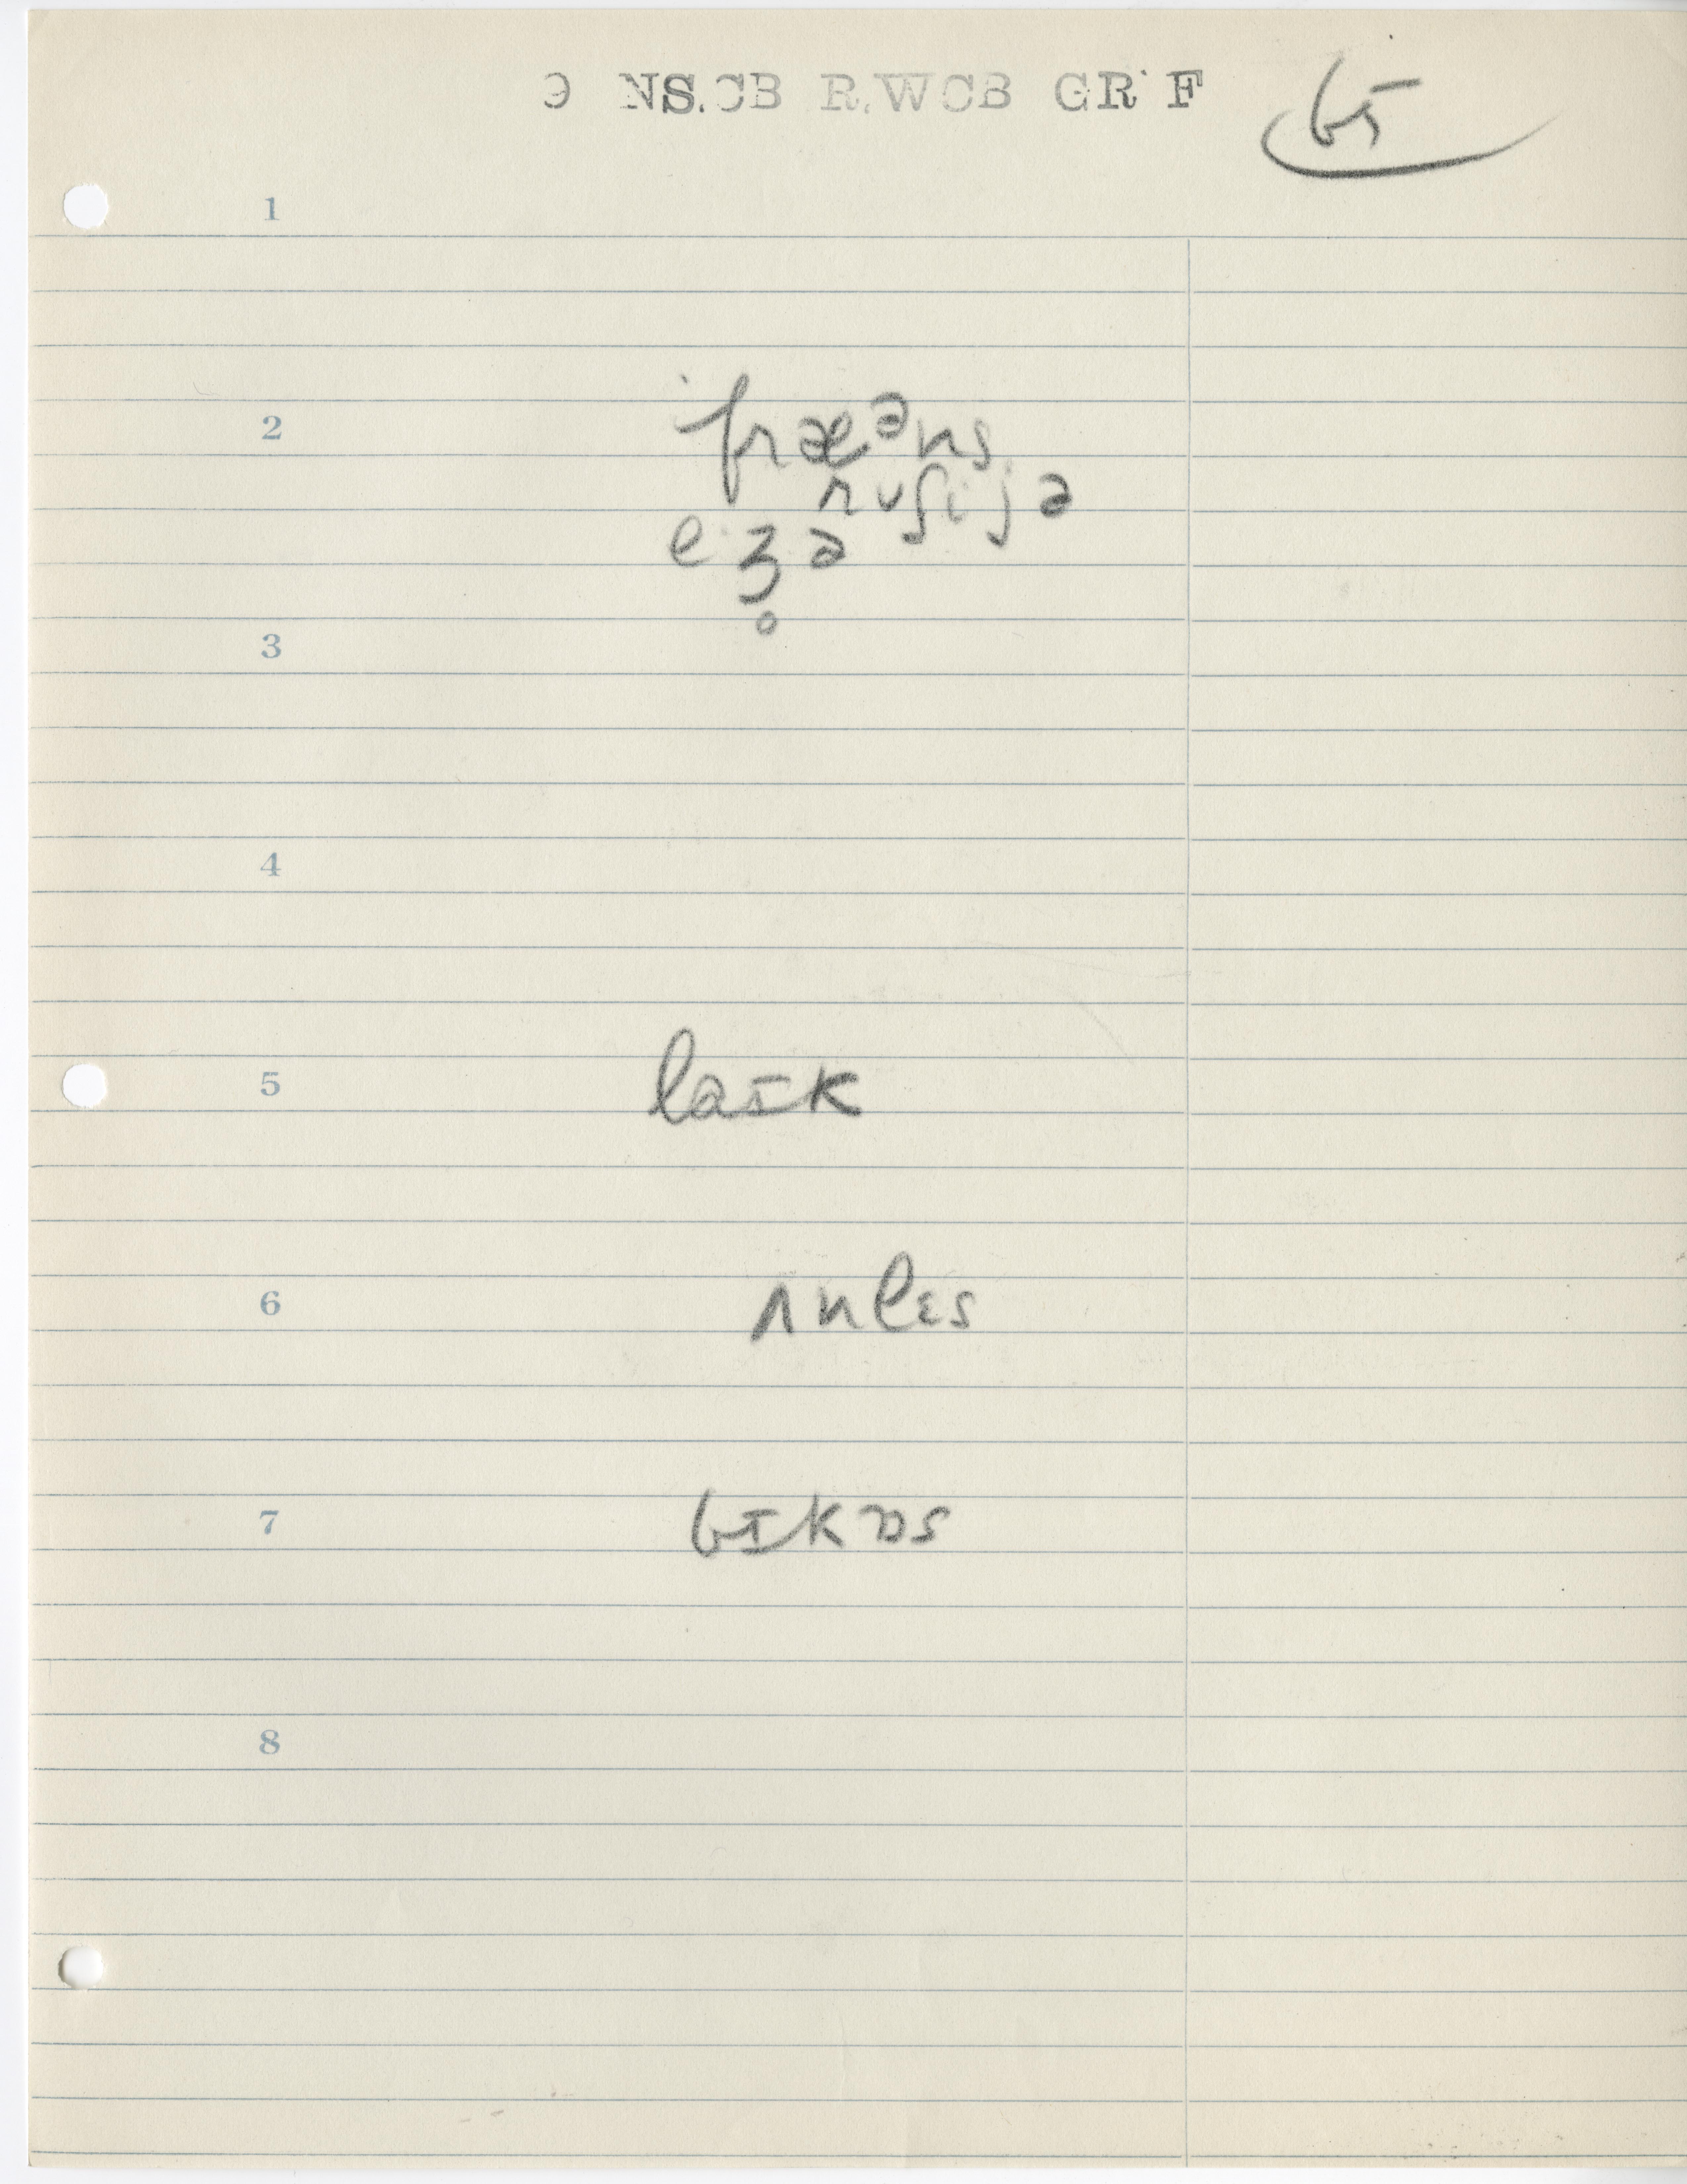 9 NS.CB R.WCB GR F
65
1
2 fræᵊns
rʊʃijə
eʒ̥ə
3
4
5 laɪk
6 ʌnlɛs
7 bɪkɒs
8